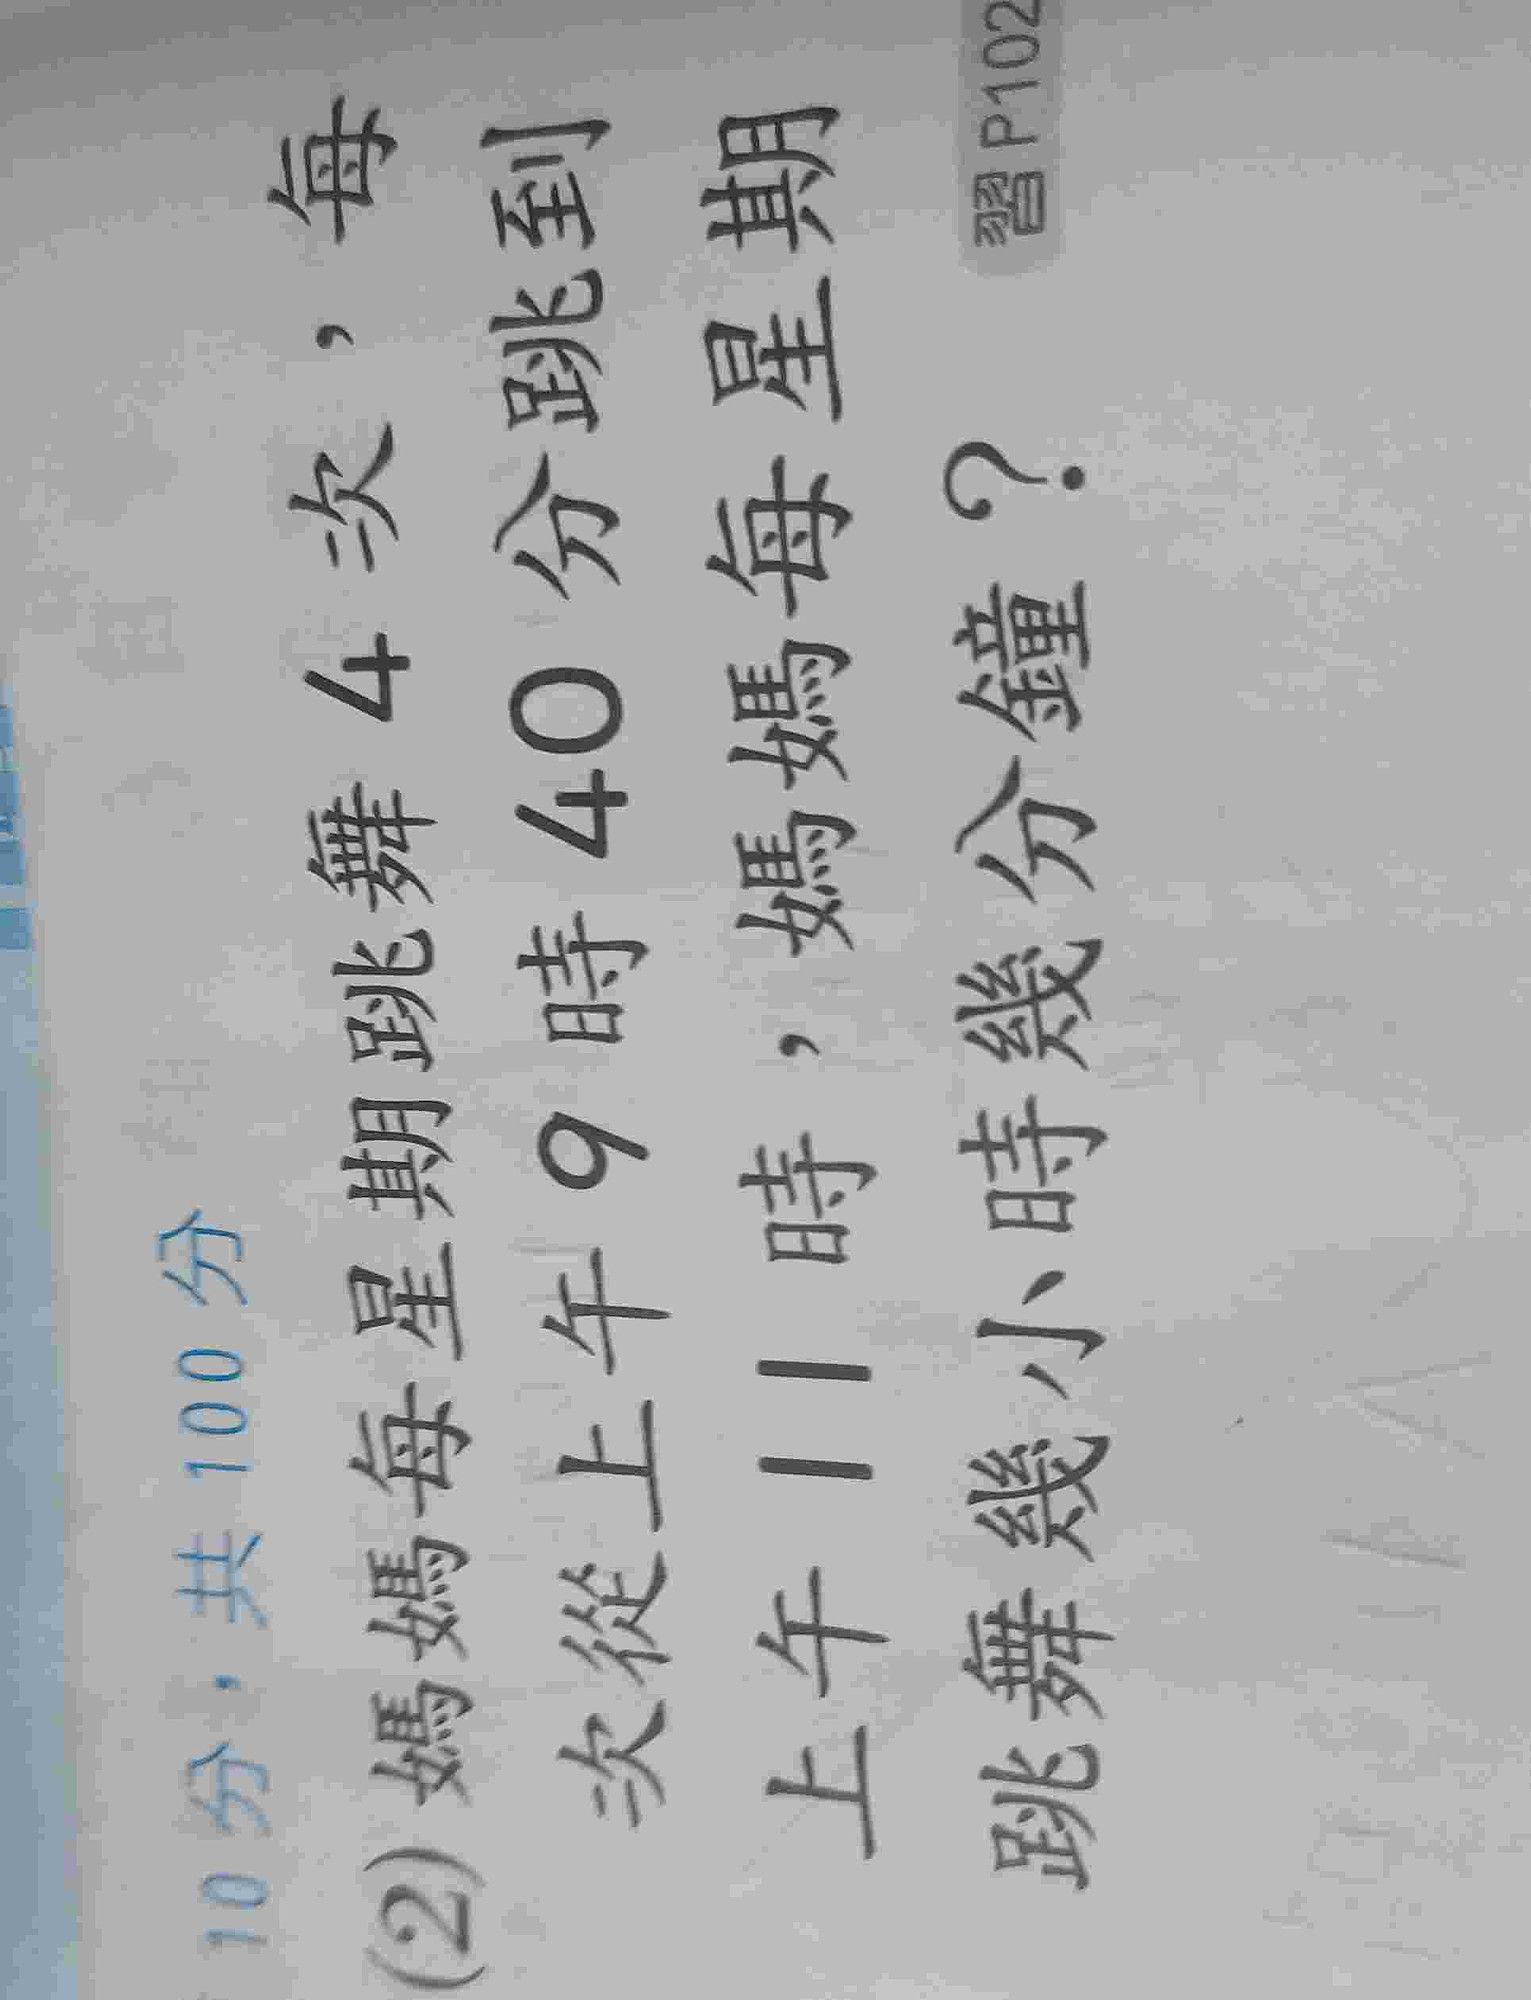 10分，共100分
(2) 媽媽每星期跳舞4次，每
次從上午9時40分跳到
上午11時，媽媽每星期
跳舞幾小時幾分鐘？
習P102